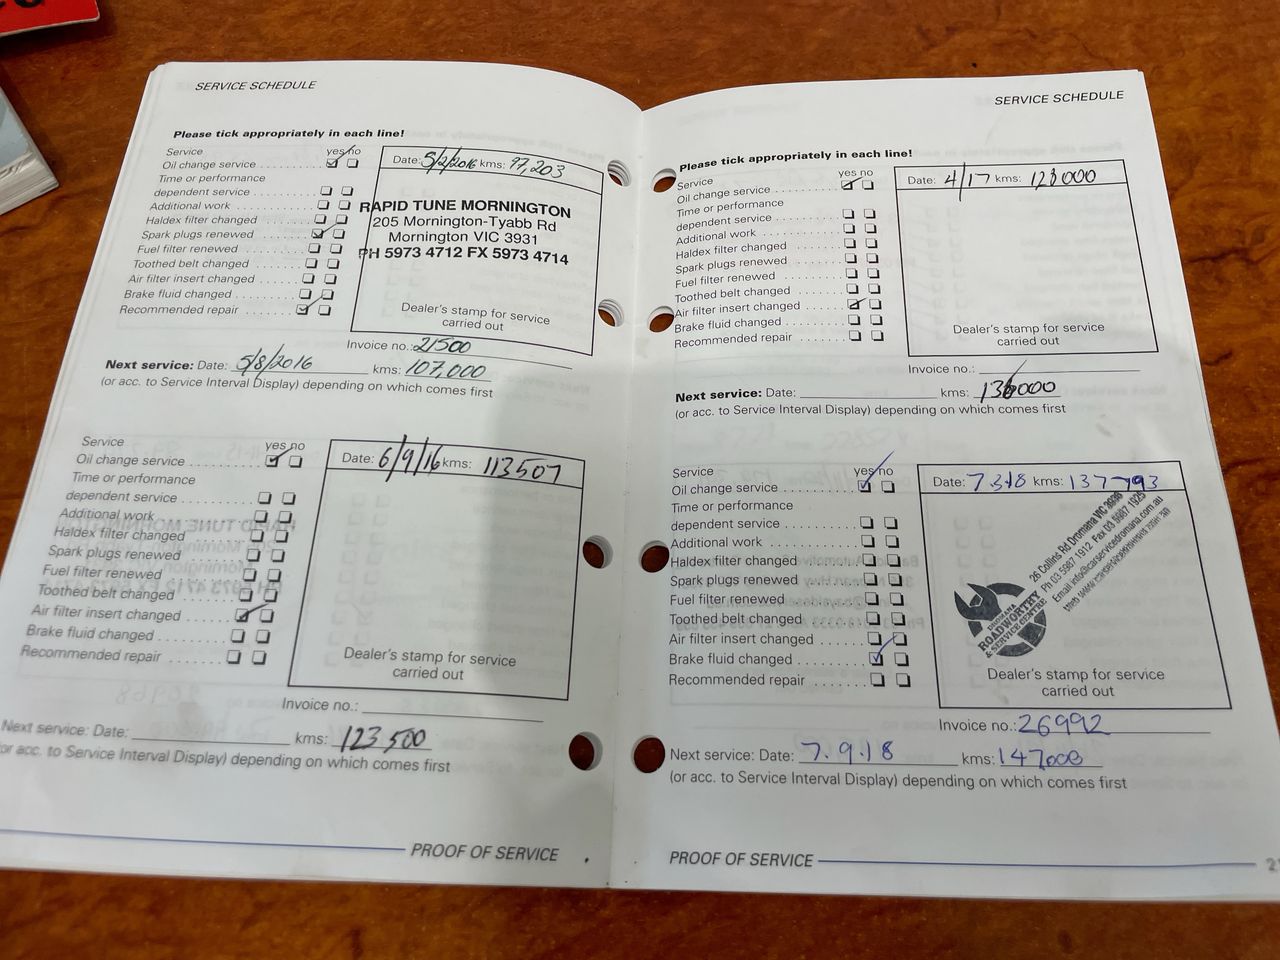 SERVICE SCHEDULE
Please tick appropriately in each line!
Service yes no
Oil change service
Time or performance
dependent service
Additional work
Haldex filter changed
Spark plugs renewed
Fuel filter renewed
Toothed belt changed
Air filter insert changed
Brake fluid changed
Recommended repair
Date: 5/2/2016 kms: 97,203
RAPID TUNE MORNINGTON
205 Mornington-Tyabb Rd
Mornington VIC 3931
PH 5973 4712 FX 5973 4714
Dealer's stamp for service
carried out
Invoice no.: 21500
Next service: Date: 5/8/2016 kms: 107,000
(or acc. to Service Interval Display) depending on which comes first
Service yes no
Oil change service
Time or performance
dependent service
Additional work
Haldex filter changed
Spark plugs renewed
Fuel filter renewed
Toothed belt changed
Air filter insert changed
Brake fluid changed
Recommended repair
Date: 6/9/16 kms: 113507
Dealer's stamp for service
carried out
Invoice no.:
Next service: Date: kms: 123,500
(or acc. to Service Interval Display) depending on which comes first
PROOF OF SERVICE
SERVICE SCHEDULE
Please tick appropriately in each line!
Service yes no
Oil change service
Time or performance
dependent service
Additional work
Haldex filter changed
Spark plugs renewed
Fuel filter renewed
Toothed belt changed
Air filter insert changed
Brake fluid changed
Recommended repair
Date: 4/17 kms:
Dealer's stamp for service
carried out
Invoice no.:
Next service: Date: kms:
(or acc. to Service Interval Display) depending on which comes first
Service yes no
Oil change service
Time or performance
dependent service
Additional work
Haldex filter changed
Spark plugs renewed
Fuel filter renewed
Toothed belt changed
Air filter insert changed
Brake fluid changed
Recommended repair
Date: 7.3.18 kms: 137793
DROMANA
ROADWORTHY
& SERVICE CENTRE
26 Collins Rd Dromana VIC 3936
Ph 03 5987 1912 Fax 03 5987 1925
Email info@carservicedromana.com.au
Dealer's stamp for service
carried out
Invoice no.: 26992
Next service: Date: 7.9.18 kms: 147,000
(or acc. to Service Interval Display) depending on which comes first
PROOF OF SERVICE